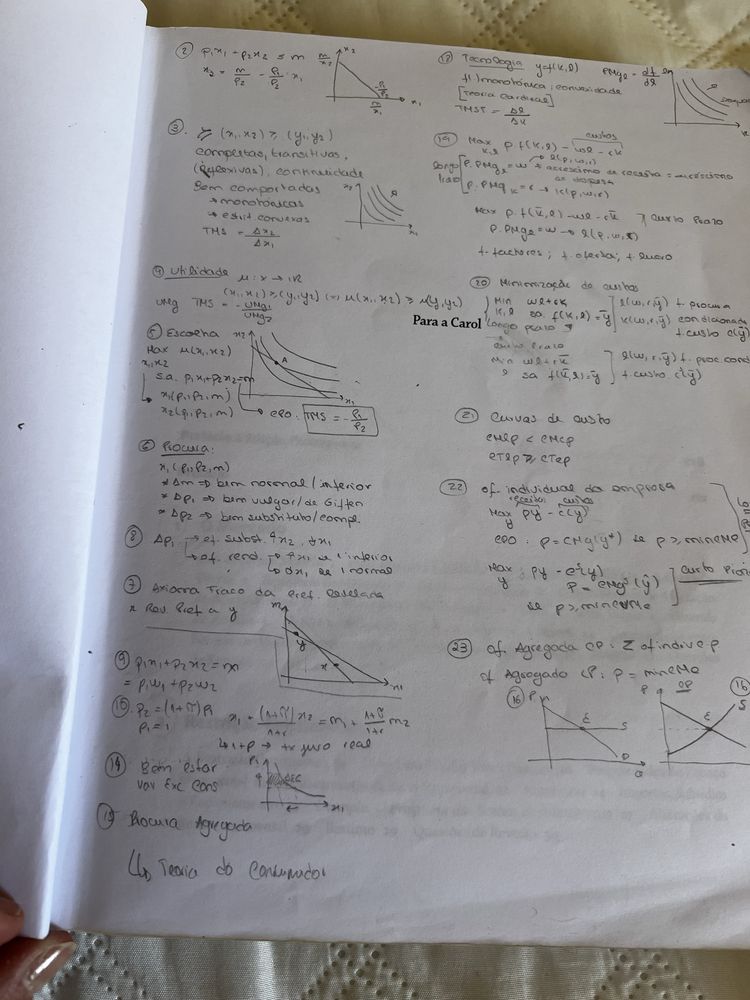 ② p₁x₁ + p₂x₂ ≤ m
x₂ = m/p₂ - p₁/p₂ · x₁
m/x₂ x₂
-p₁/p₂
m/x₁ x₁
③ ≽ (x₁,x₂) ≥ (y₁,y₂)
completas, transitivas,
(reflexivas), continuidade
Bem comportadas
→ monotónicas
→ estrit. convexas
TMS = Δx₂/Δx₁
x₁
④ Utilidade u: x → ℝ
(x₁,x₂) ≥ (y₁,y₂) (=) u(x₁,x₂) ≥ u(y₁,y₂)
UMg TMS = -UMg₁/UMg₂
⑤ Escolha x₂
Max u(x₁,x₂)
x₁x₂
A
s.a. p₁x₁+p₂x₂=m
x₁(p₁,p₂,m)
x₂(p₁,p₂,m) → CPO: TMS = -p₁/p₂
x₁
⑥ Procura:
x₁(p₁,p₂,m)
* Δm => bem normal/inferior
* Δp₁ => bem vulgar/de Giffen
* Δp₂ => bem substituto/compl.
⑧ Δp₁ → ef. subst.
→ ef. rend. → se 1 inferior
→ se 1 normal
⑦ Axioma Fraco da Pref. Revelada
x Rev Pref a y
m
y
x
x₁
⑨ p₁x₁+p₂x₂=m
= p₁w₁+p₂w₂
⑩ p₂=(1+π)p₁
p₁=1
x₁ + (1+π)/(1+r) x₂ = m₁ + (1+π)/(1+r) m₂
↳ 1+ρ → tx juro real
⑭ Bem estar
Var Exc Cons
P₁
ΔEC
x₁
⑮ Procura Agregada
↳ Teoria do Consumidor
Para a Carol
⑱ Tecnologia y=f(k,l) PMg_l = df/dl
f() monotónica; convexidade
[Teoria Cardinal]
TMST = Δl/Δk
⑲ Max p.f(k,l) - wl - rk
k,l
custos
longo
prazo
p.PMg_l = w → acréscimo de receita = acréscimo
l(p,w,r)
p.PMg_k = r → k(p,w,r)
Max p.f(k̄,l) - wl - rk̄
curto prazo
p.PMg_l = w → l(p,w,r̄)
f. factores; f. oferta; f. lucro
⑳ Minimização de custos
Min wl+rk
k,l sa f(k,l)=ȳ
longo prazo
l(w,r,ȳ) f. procura
k(w,r,ȳ) condicionada
f. custo c(ȳ)
curto prazo
Min wl+rk̄
l sa f(k̄,l)=ȳ
l(w,r,ȳ) f. proc. cond
f. custo cˢ(ȳ)
㉑ Curvas de custo
CMlp < CMcp
㉒ Of. individual da empresa
receitas custos
Max py - c(y)
y
CPO: p=CMg(y*) se p≥minCMe
Max py - cˢ(y)
y
p = CMgˢ(ŷ)
se p≥minCVMe
Curto Prazo
㉓ Of. Agregada CP: Σ of indiv e p
of Agregado LP: p = minCMe
⑯ P
E
S
D
Q
⑯
P CP
S
E